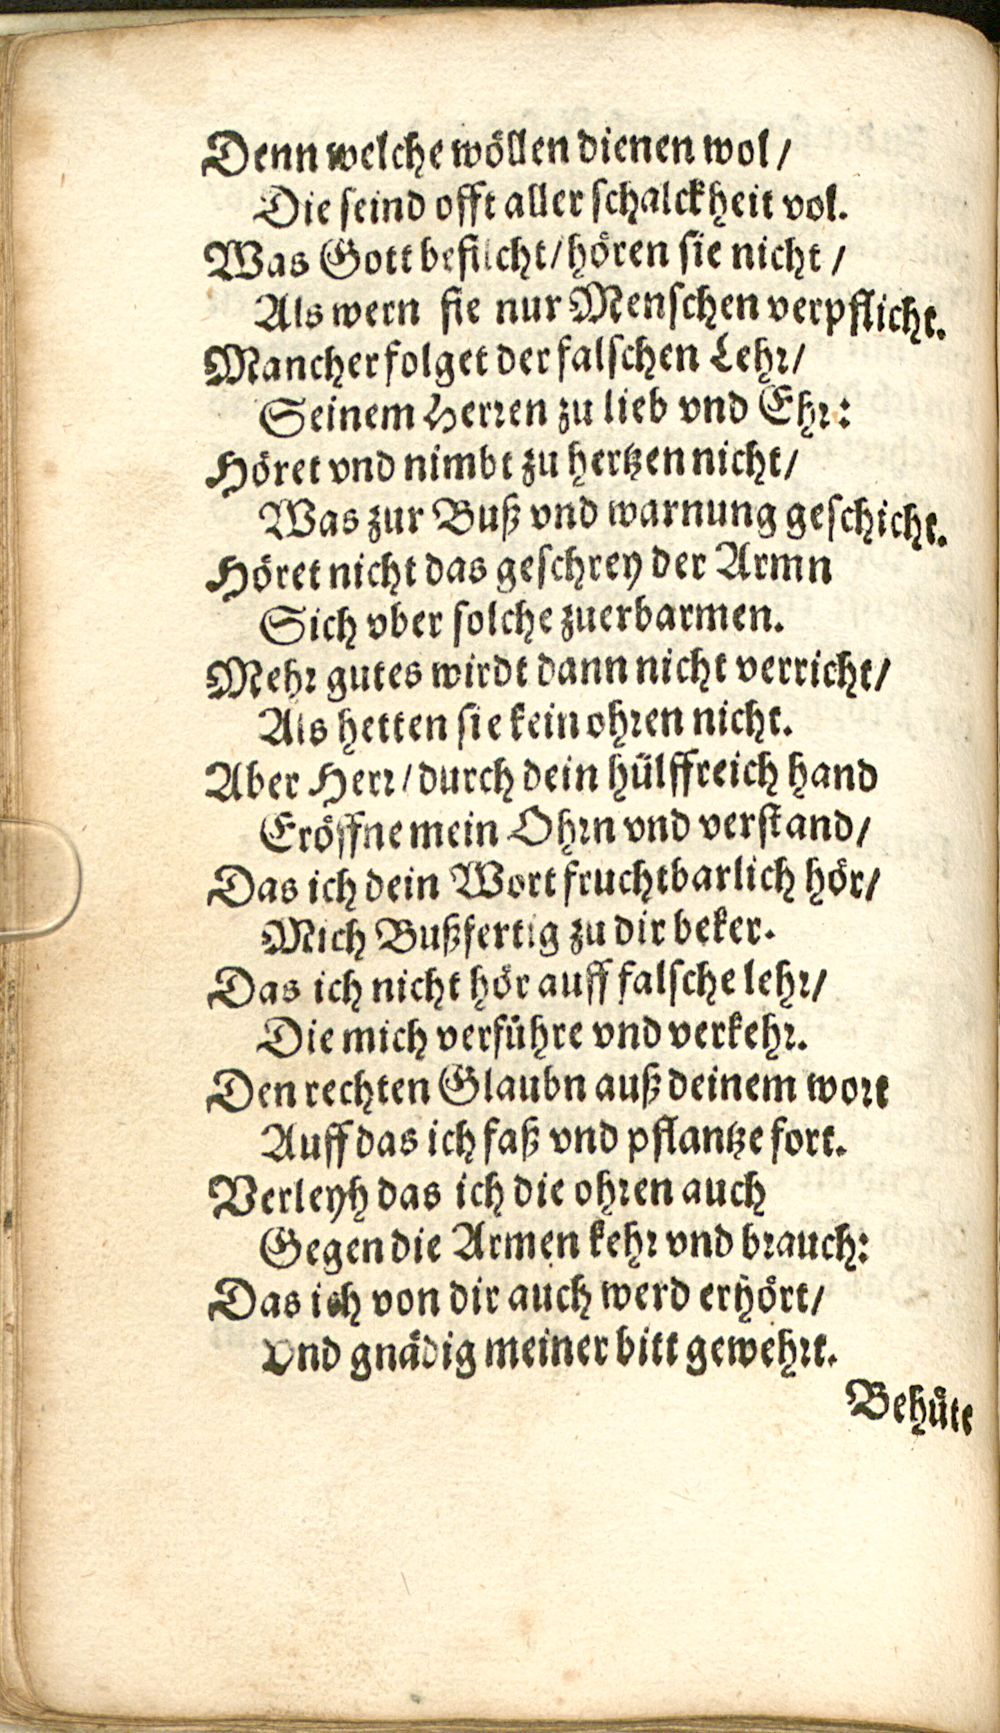 Denn welche wöllen dienen wol /
Die seind offt aller schalckheit vol.
Was Gott befilcht / hören sie nicht /
Als wern sie nur Menschen verpflicht.
Mancher folget der falschen Lehr /
Seinem Herren zu lieb vnd Ehr:
Höret vnd nimbt zu hertzen nicht /
Was zur Buß vnd warnung geschicht.
Höret nicht das geschrey der Armn
Sich vber solche zuerbarmen.
Mehr gutes wirdt dann nicht verricht /
Als hetten sie kein ohren nicht.
Aber Herr / durch dein hülffreich hand
Eröffne mein Ohrn vnd verstand /
Das ich dein Wort fruchtbarlich hör /
Mich Bußfertig zu dir beker.
Das ich nicht hör auff falsche lehr /
Die mich verführe vnd verkehr.
Den rechten Glaubn auß deinem wort
Auff das ich faß vnd pflantze fort.
Verleyh das ich die ohren auch
Gegen die Armen kehr vnd brauch:
Das ich von dir auch werd erhört /
Vnd gnädig meiner bitt gewehrt.
Behüte